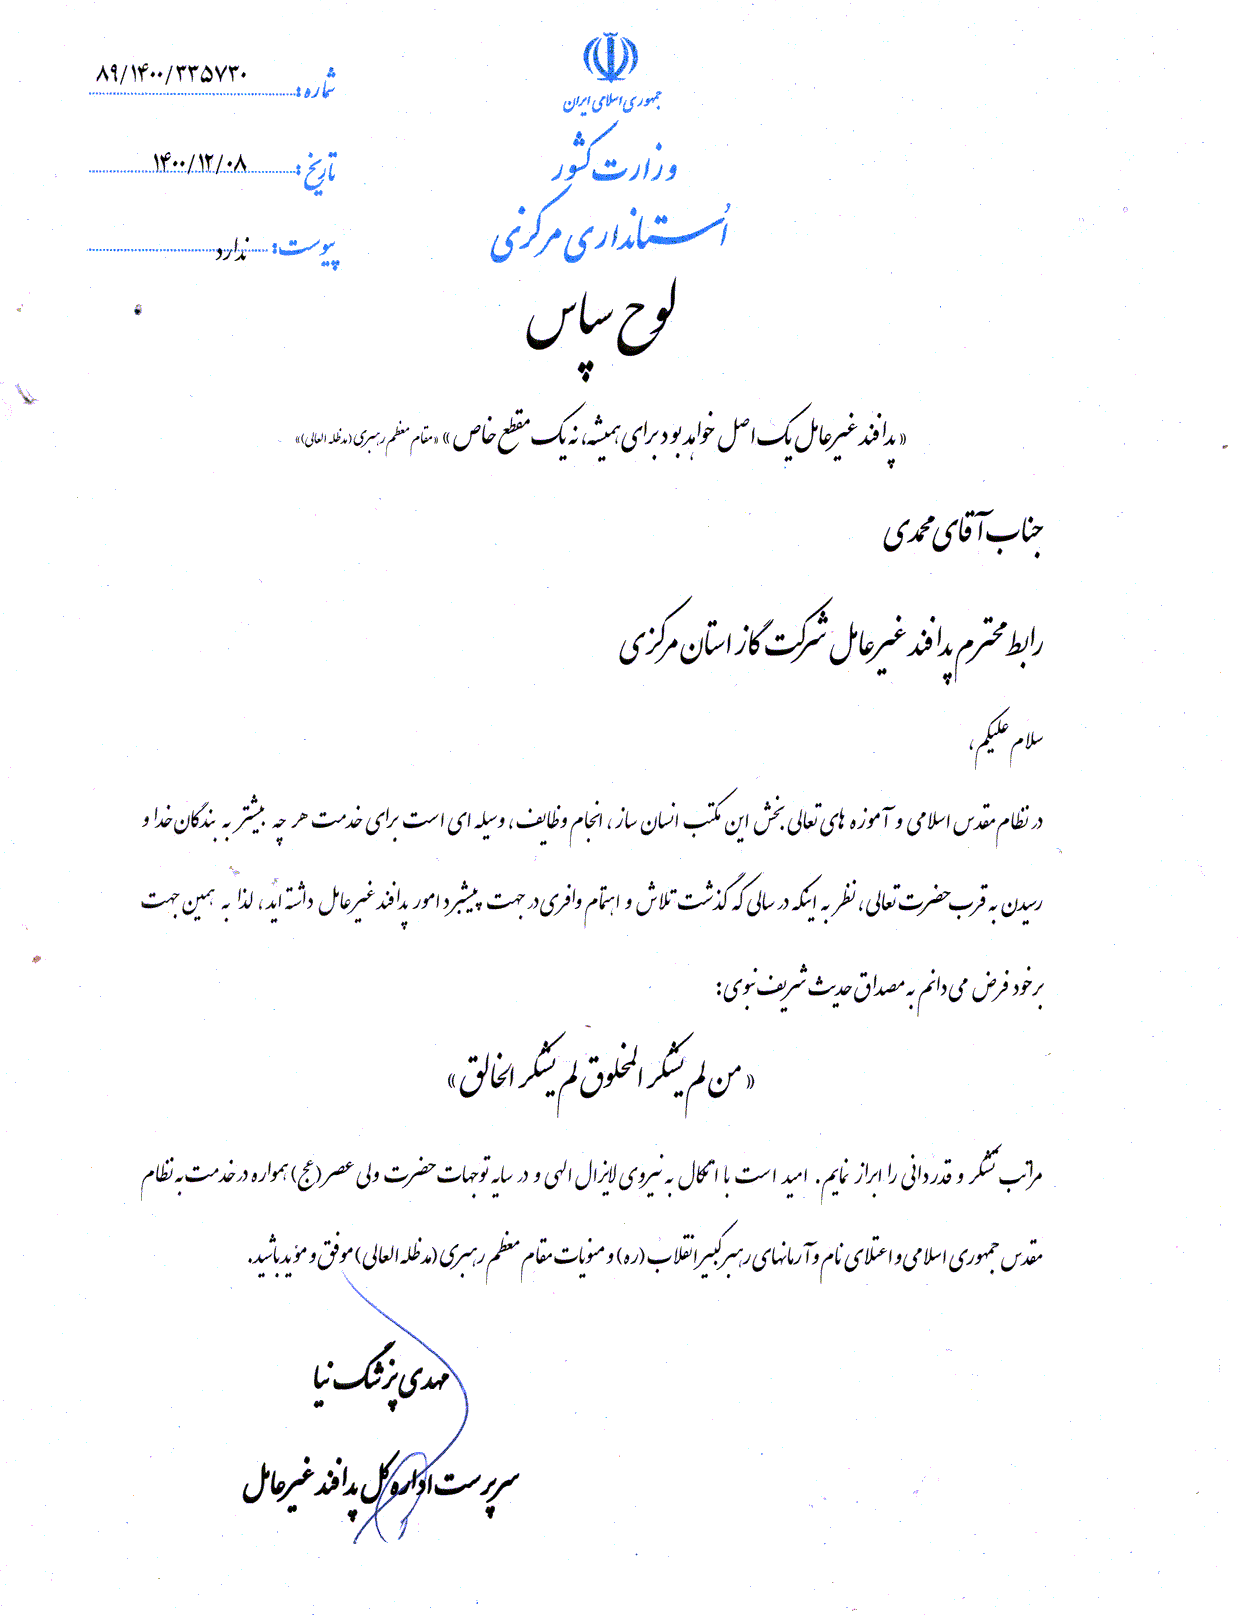 جمهوری اسلامی ایران
وزارت کشور
اُستانداری مرکزی
شماره: ۸۹/۱۴۰۰/۳۳۵۷۳۰
تاریخ: ۱۴۰۰/۱۲/۰۸
پیوست: ندارد
لوح سپاس
« پدافند غیرعامل یک اصل خواهد بود برای همیشه، نه یک مقطع خاص » «مقام معظم رهبری (مدظله العالی)»
جناب آقای محمدی
رابط محترم پدافند غیرعامل شرکت گاز استان مرکزی
سلام علیکم،
در نظام مقدس اسلامی و آموزه های تعالی بخش این مکتب انسان ساز، انجام وظایف، وسیله ای است برای خدمت هر چه بیشتر به بندگان خدا و
رسیدن به قرب حضرت تعالی، نظر به اینکه در سالی که گذشت تلاش و اهتمام وافری در جهت پیشبرد امور پدافند غیرعامل داشته اید، لذا به همین جهت
برخود فرض می دانم به مصداق حدیث شریف نبوی:
« من لم یشکر المخلوق لم یشکر الخالق »
مراتب تشکر و قدردانی را ابراز نمایم. امید است با اتکال به نیروی لایزال الهی و در سایه توجهات حضرت ولی عصر (عج) همواره در خدمت به نظام
مقدس جمهوری اسلامی و اعتلای نام و آرمانهای رهبر کبیر انقلاب (ره) و منویات مقام معظم رهبری (مدظله العالی) موفق و موید باشید.
مهدی پزشک نیا
سرپرست اداره کل پدافند غیرعامل